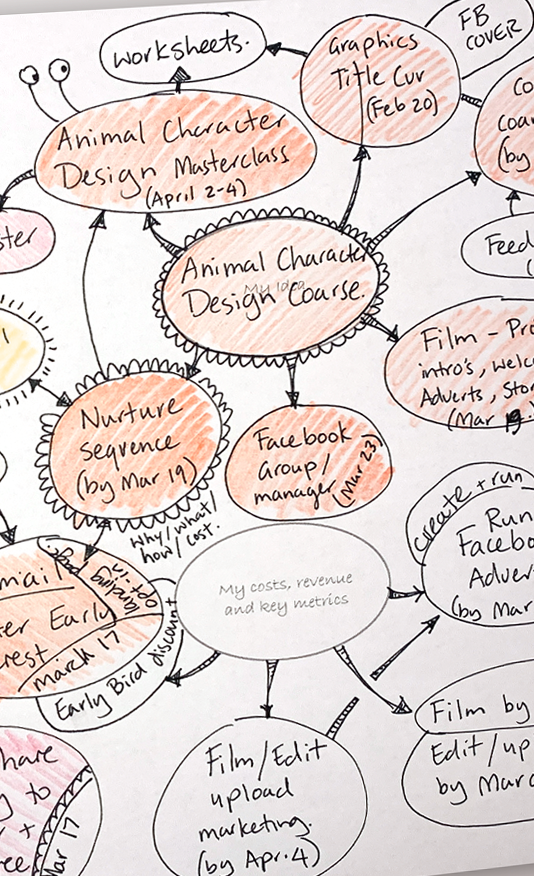 worksheets.
Graphics
Title Cur
(Feb 20)
FB
COVER
Co
coar
(by
Animal Character
Design Masterclass
(April 2-4)
ter
Animal Character
My Idea
Design Coarse.
Feed
Film - Pro
intro's, welc
Adverts, Stor
(Mar 19
Nurture
sequence
(by Mar 19)
Facebook
Group/
manager
(Mar 23)
Why/what/
how/cost.
create + run
Run
Facebo
Adver
(by Mar
mail
landing page.
opt-in
er Early
rest
march 17
Early Bird discount
My costs, revenue
and key metrics
Film by
Edit/up
by Marc
Film/Edit
upload
marketing.
(by Apr.4)
hare
g to
+
ee
Mar 17